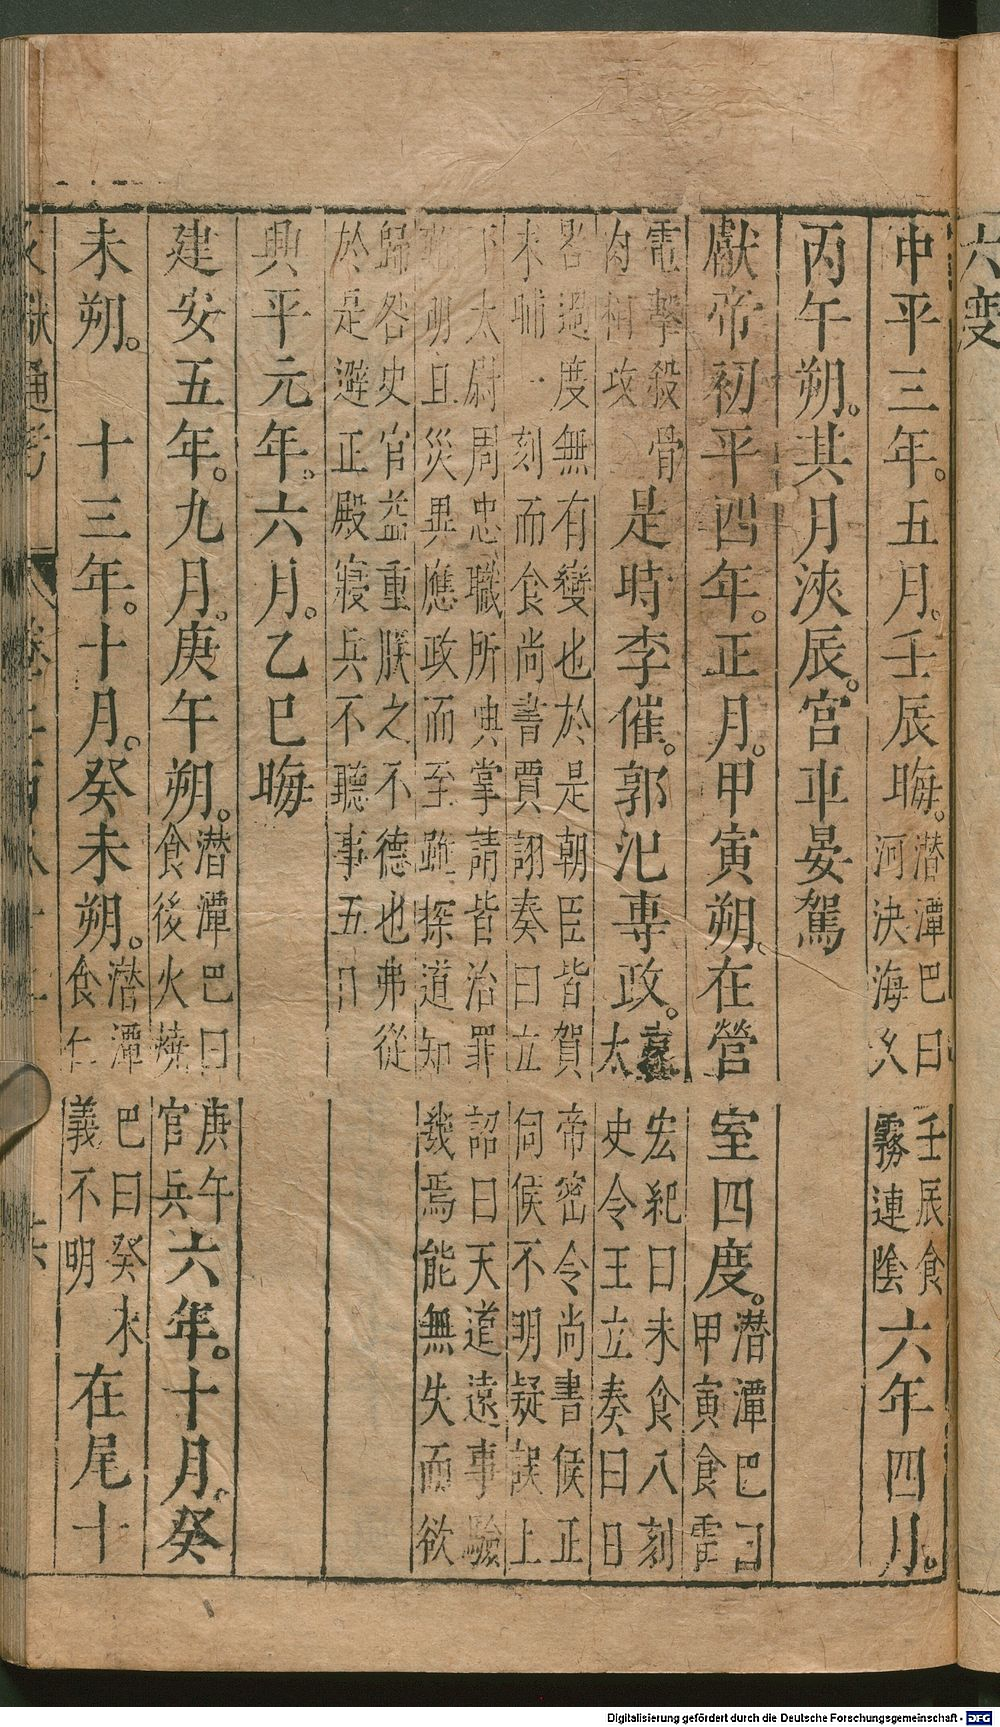 六度
中平三年。五月。壬辰晦。潜潭巴曰壬辰食
河決海久霧連陰六年四月。
丙午朔。其月浹辰。宮車晏駕
獻帝初平四年。正月。甲寅朔。在營室四度。潜潭巴曰
甲寅食雷
電擊殺骨
肉相攻是時李催。郭汜專政。袁宏紀曰未食八刻
太史令王立奏曰日
晷過度無有變也於是朝臣皆賀帝密令尚書候正
未晡一刻而食尚書賈詡奏曰立伺候不明疑誤上
下太尉周忠職所典掌請皆治罪詔曰天道遠事驗
難明且災異應政而至雖探道知幾焉能無失而欲
歸咎史官益重朕之不德也弗從
於是避正殿寢兵不聽事五日
興平元年。六月。乙巳晦
建安五年。九月。庚午朔。潜潭巴曰庚午
食後火燒官兵六年。十月。癸
未朔。 十三年。十月。癸未朔。潜潭巴曰癸未
食仁義不明在尾十
獻通考
Digitalisierung gefördert durch die Deutsche Forschungsgemeinschaft - DFG